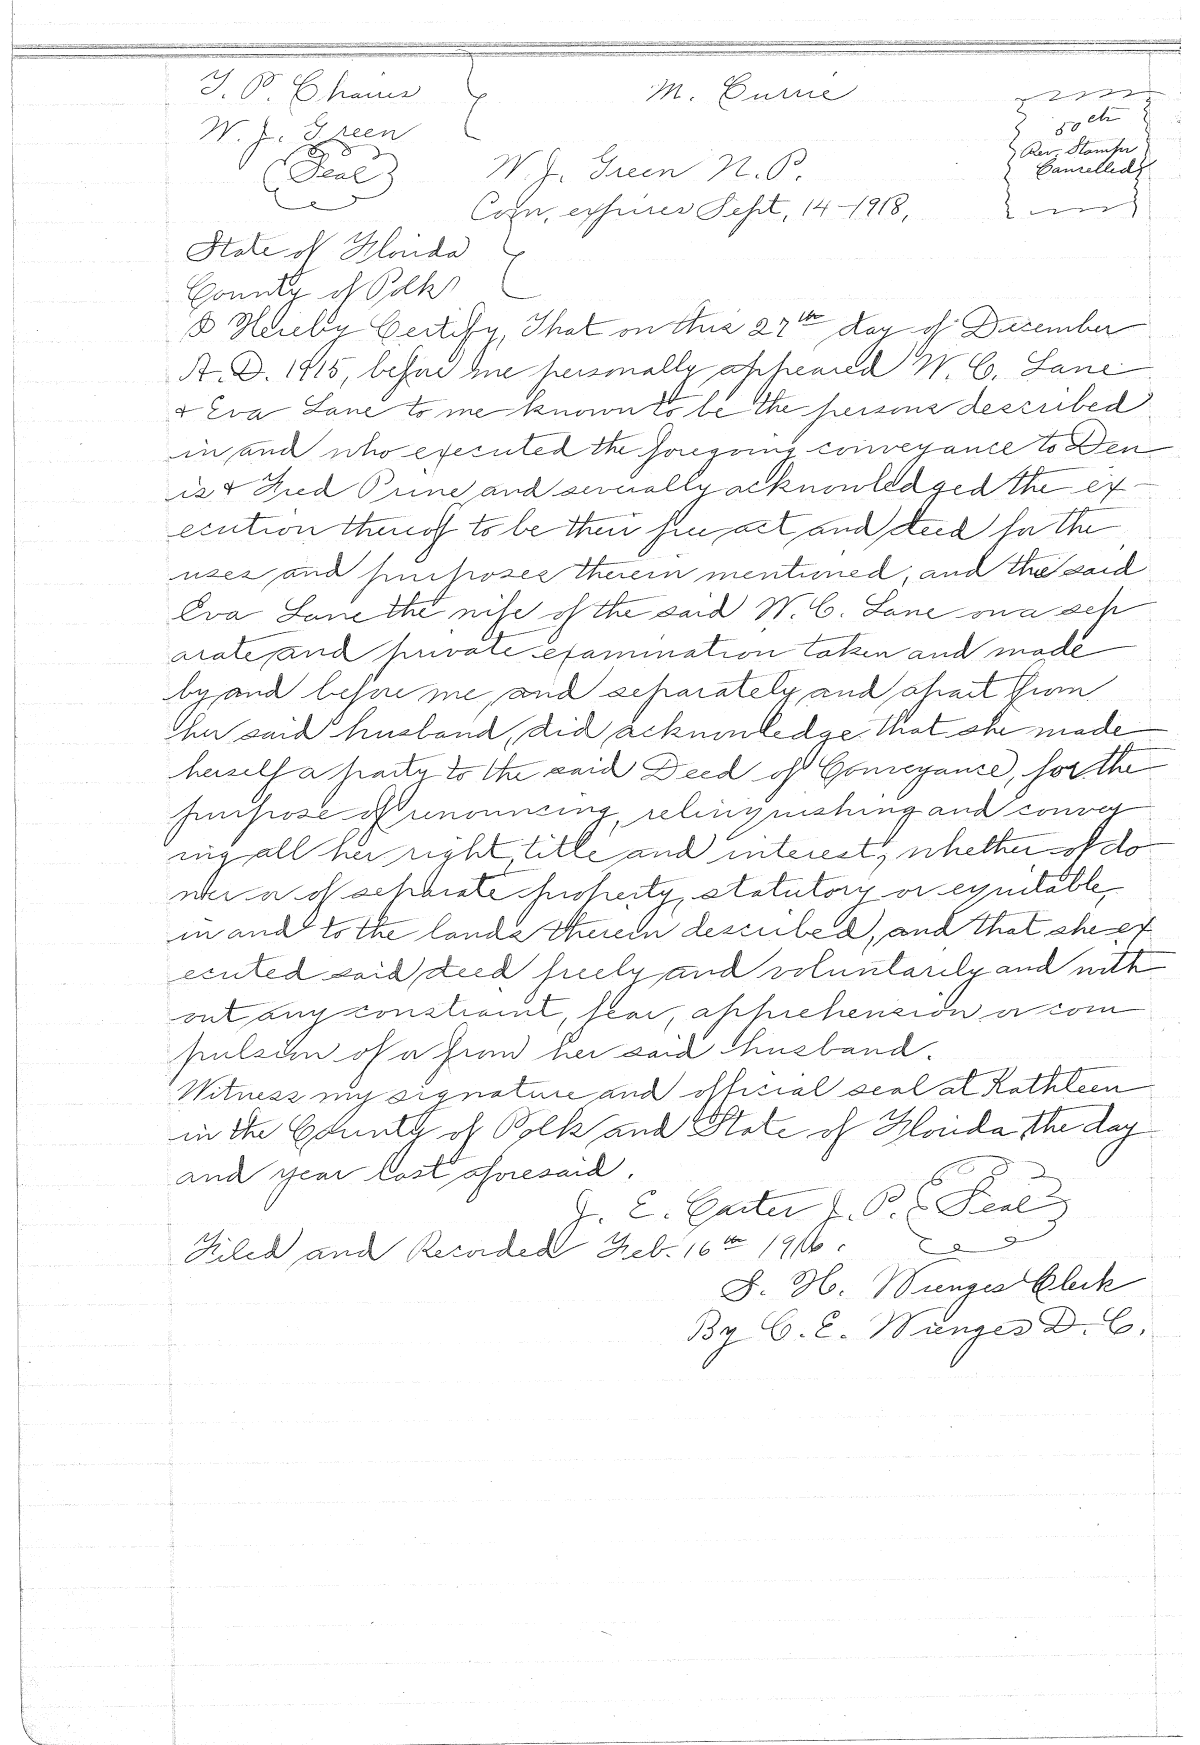 T. P. Chaires
M. Currie
W. J. Green
(Seal)
50 cts
Rev. Stamps
Cancelled
W. J. Green N. P.
Com, expires Sept, 14-1918,
State of Florida
County of Polk
I Hereby Certify, That on this 27th day of December
A. D. 1915, before me personally appeared W. C. Lane
& Eva Lane to me known to be the persons described
in and who executed the foregoing conveyance to Den
is & Fred Prine and severally acknowledged the ex-
ecution thereof to be their free act and deed for the
uses and purposes therein mentioned; and the said
Eva Lane the wife of the said W. C. Lane on a sep
arate and private examination taken and made
by and before me, and separately and apart from
her said husband, did acknowledge that she made
herself a party to the said Deed of Conveyance, for the
purpose of renouncing, relinquishing and convey
ing all her right, title and interest, whether of do
wer or of separate property, statutory or equitable,
in and to the lands therein described, and that she ex
ecuted said deed freely and voluntarily and with
out any constraint, fear, apprehension or com
pulsion of or from her said husband.
Witness my signature and official seal at Kathleen
in the County of Polk and State of Florida the day
and year last aforesaid.
J. E. Carter J. P. (Seal)
Filed and Recorded Feb. 16th 1916.
S. H. Wienges Clerk
By C. E. Wienges D. C.